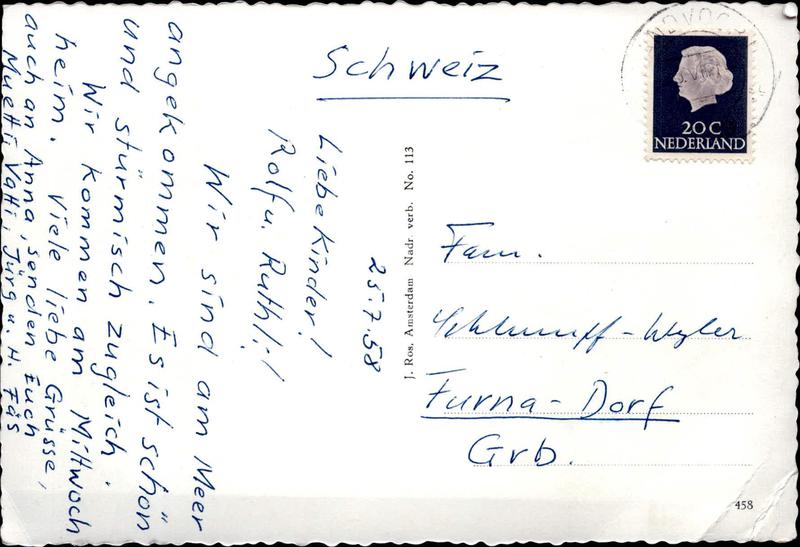 25.7.58
Liebe Kinder!
Rolf u. Ruthli!
Wir sind am Meer
angekommen. Es ist schön
und stürmisch zugleich.
Wir kommen am Mittwoch
heim. Viele liebe Grüsse,
auch an Anna, senden Euch
Muetti, Vatti, Jürg u. H. Fäs
J. Ros, Amsterdam Nadr. verb. No. 113
Schweiz
20 C
NEDERLAND
Fam.
Schlumpf-Wyler
Furna-Dorf
Grb.
458